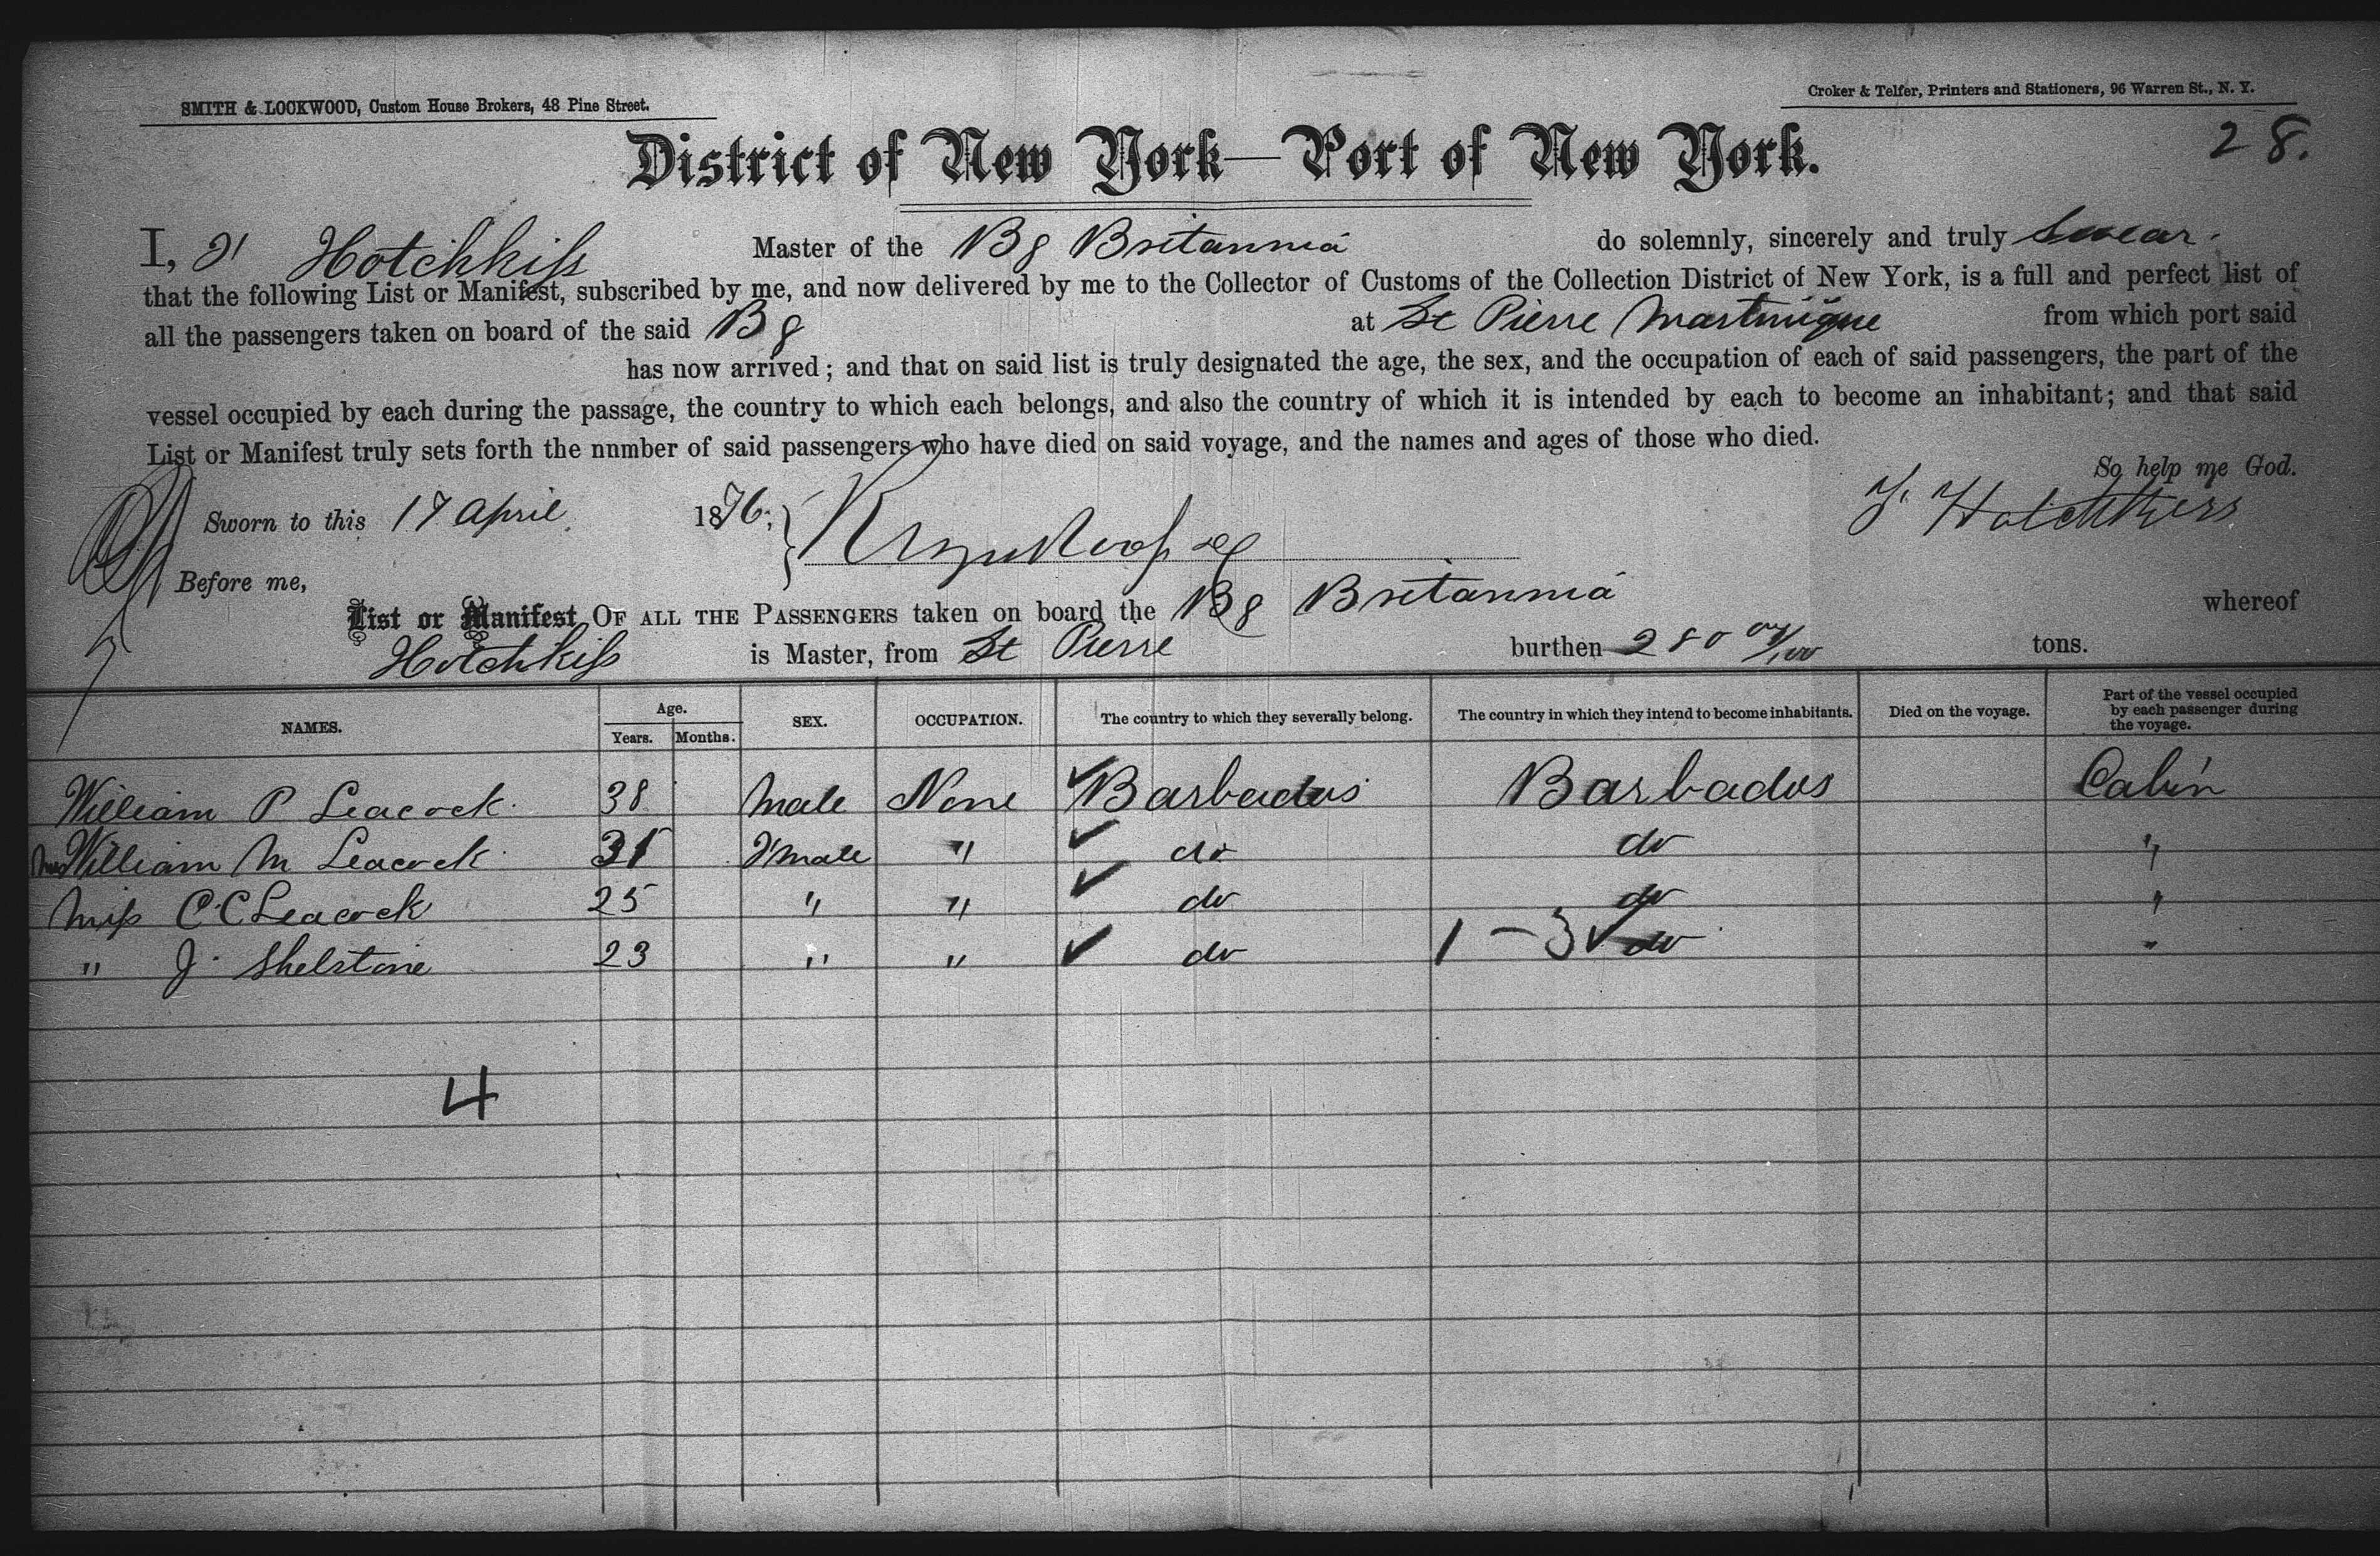 SMITH & LOCKWOOD, Custom House Brokers, 48 Pine Street.
Croker & Telfer, Printers and Stationers, 96 Warren St., N. Y.
28.
District of New York—Port of New York.
I, Hotchkiss Master of the Bg Britannia do solemnly, sincerely and truly swear.
that the following List or Manifest, subscribed by me, and now delivered by me to the Collector of Customs of the Collection District of New York, is a full and perfect list of
all the passengers taken on board of the said Bg at St Pierre Martinique from which port said
has now arrived; and that on said list is truly designated the age, the sex, and the occupation of each of said passengers, the part of the
vessel occupied by each during the passage, the country to which each belongs, and also the country of which it is intended by each to become an inhabitant; and that said
List or Manifest truly sets forth the nnmber of said passengers who have died on said voyage, and the names and ages of those who died.
So help me God.
Sworn to this 17 April 1876;
Before me,
List or Manifest OF ALL THE PASSENGERS taken on board the Bg Britannia whereof
Hotchkiss is Master, from St Pierre burthen 280 tons.
NAMES. Age. Years. Months. SEX. OCCUPATION. The country to which they severally belong. The country in which they intend to become inhabitants. Died on the voyage. Part of the vessel occupied by each passenger during the voyage.
William P Leacock 38 Male None Barbados Barbados Cabin
Mrs William M Leacock 31 F'male " do do "
Miss C. C Leacock 25 " " do do "
" J. Shelstone 23 " " do 1 - 3 do "
4